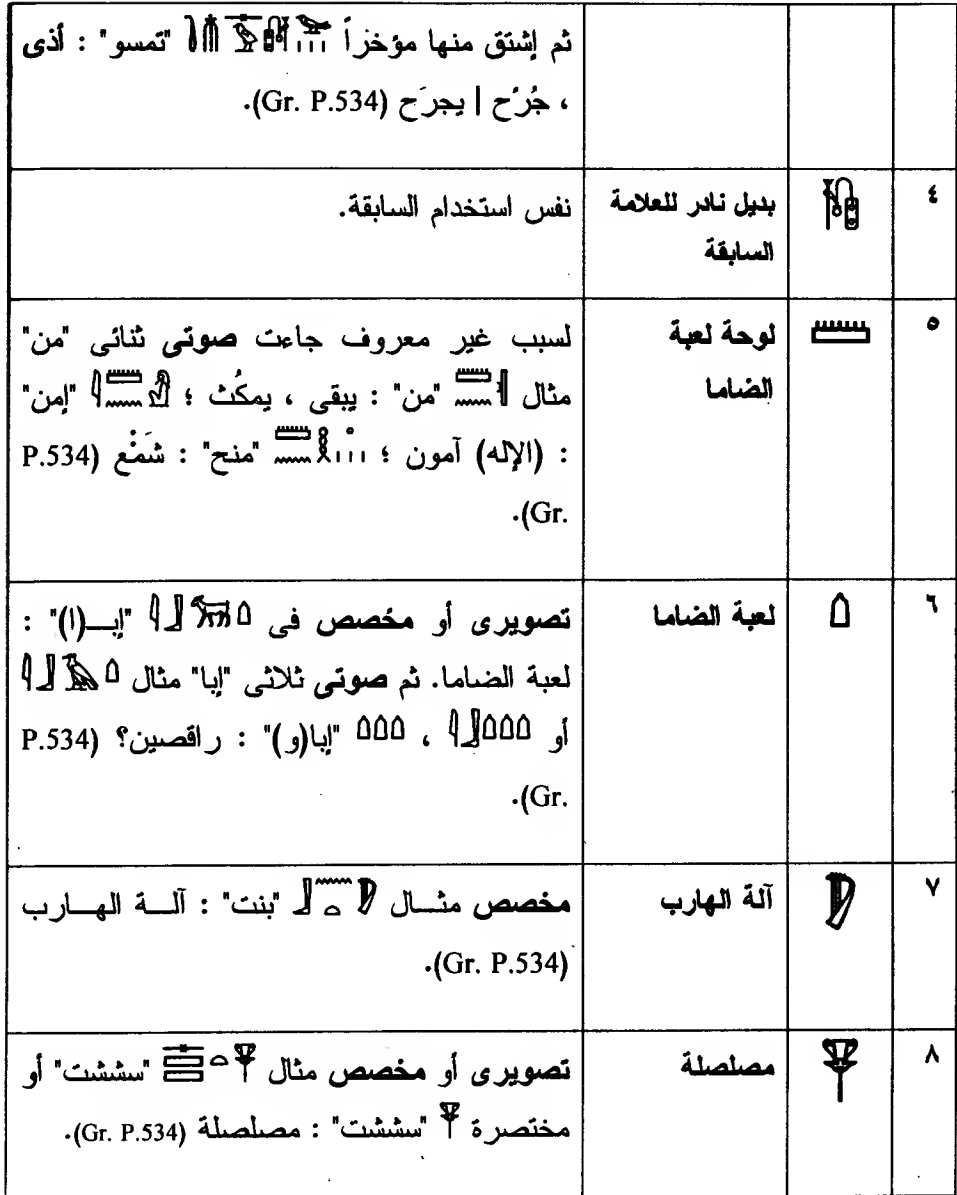 ثم إشتق منها مؤخزاً 𓏞 "تمسو" : أذى
، جُرْح | يجرَح (Gr. P.534).
٤
بديل نادر للعلامة
السابقة
نفس استخدام السابقة.
٥
𓏠
لوحة لعبة
الضاما
لسبب غير معروف جاءت صوتى ثنائى "من"
مثال "من" : يبقى ، يمكُث ؛ "إمن"
: (الإله) آمون ؛ "منح" : شَمْع (P.534
Gr.).
٦
𓏡
لعبة الضاما
تصويرى أو مخصص فى "إبـــ(ا)" :
لعبة الضاما. ثم صوتى ثلاثى "إبا" مثال
أو ، "إبا(و)" : راقصين؟ (P.534
Gr.).
٧
آلة الهارب
مخصص مثـــال "بنت" : آلـــة الهـــارب
(Gr. P.534).
٨
مصلصلة
تصويرى أو مخصص مثال "سششت" أو
مختصرة "سششت" : مصلصلة (Gr. P.534).